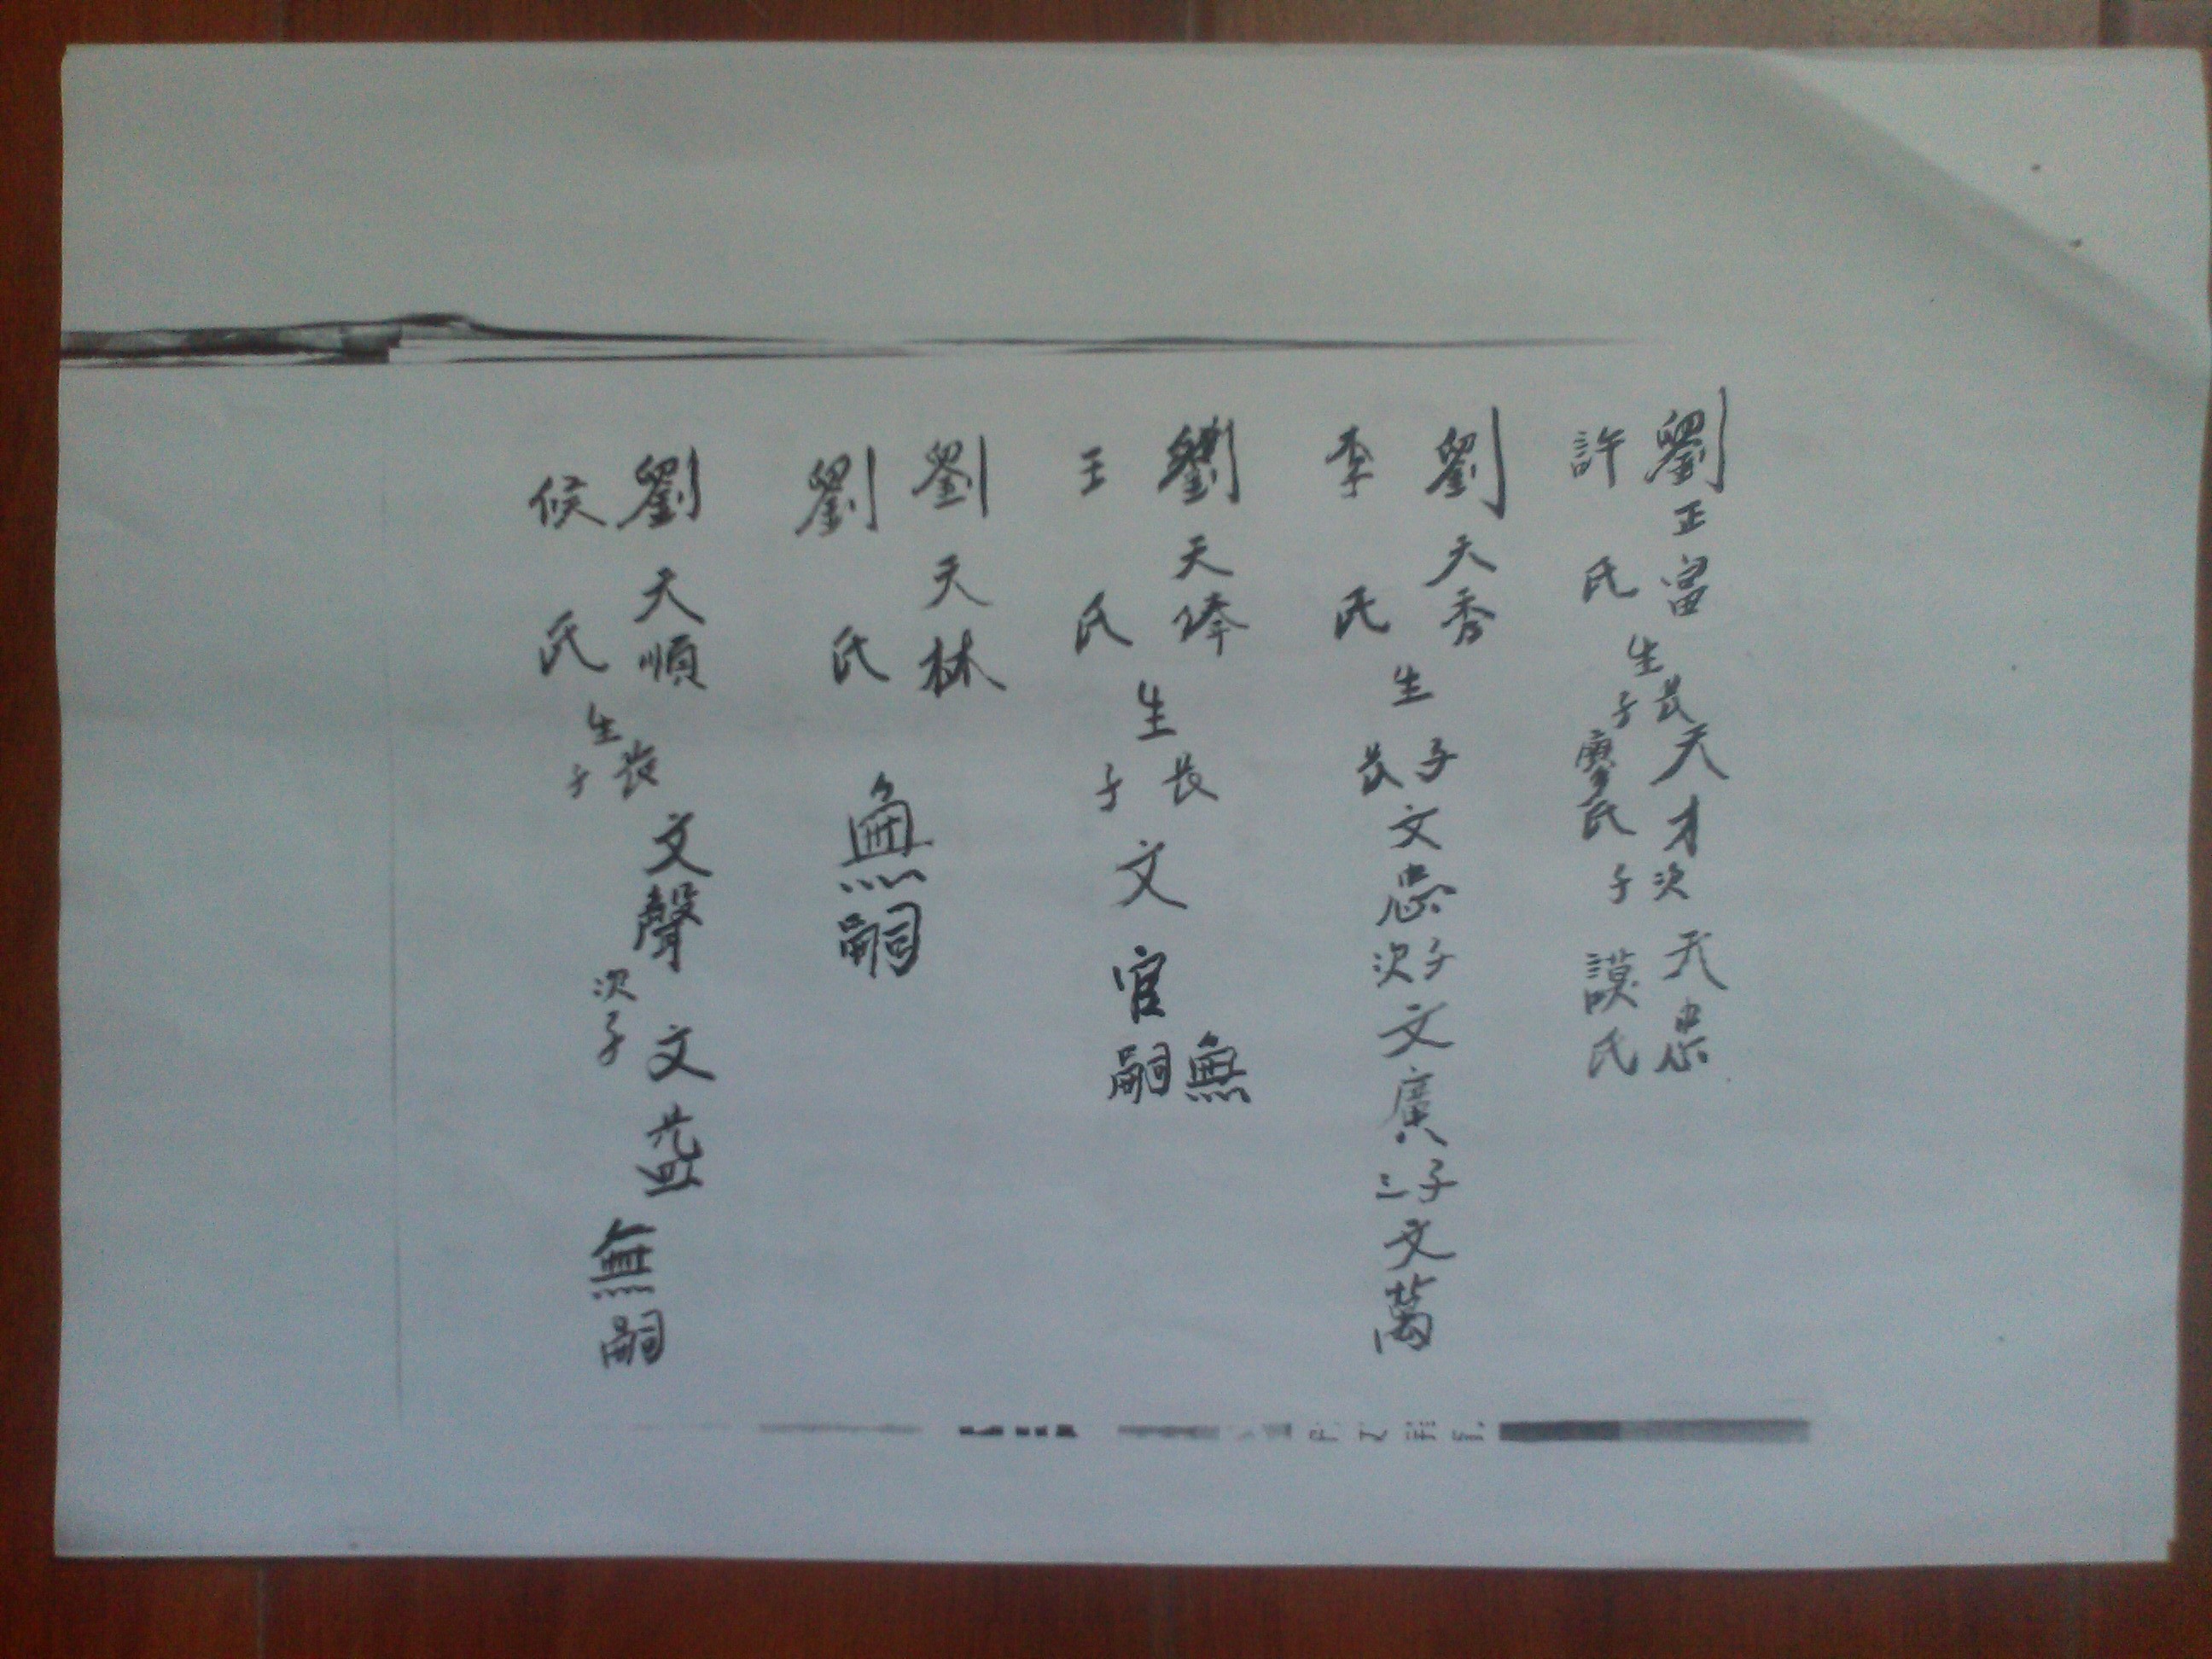 劉正富
許氏
生長子天才廖氏
次子天忠謨氏
劉天秀
李氏
生長子文忠次子文廣三子文萬
劉天俸
王氏
生長子文官無嗣
劉天林
劉氏
無嗣
劉天順
候氏
生長子文聲次子文 無嗣